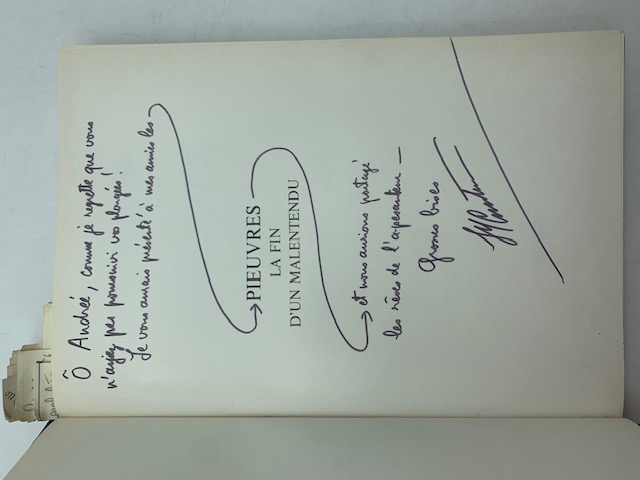 Ô Andrée, comme je regrette que vous
n'ayez pas poursuivi vos plongées!
Je vous aurais présenté à mes amies les
PIEUVRES
LA FIN
D'UN MALENTENDU
et nous aurions partagé
les rêves de l'apesanteur —
Grosses bises